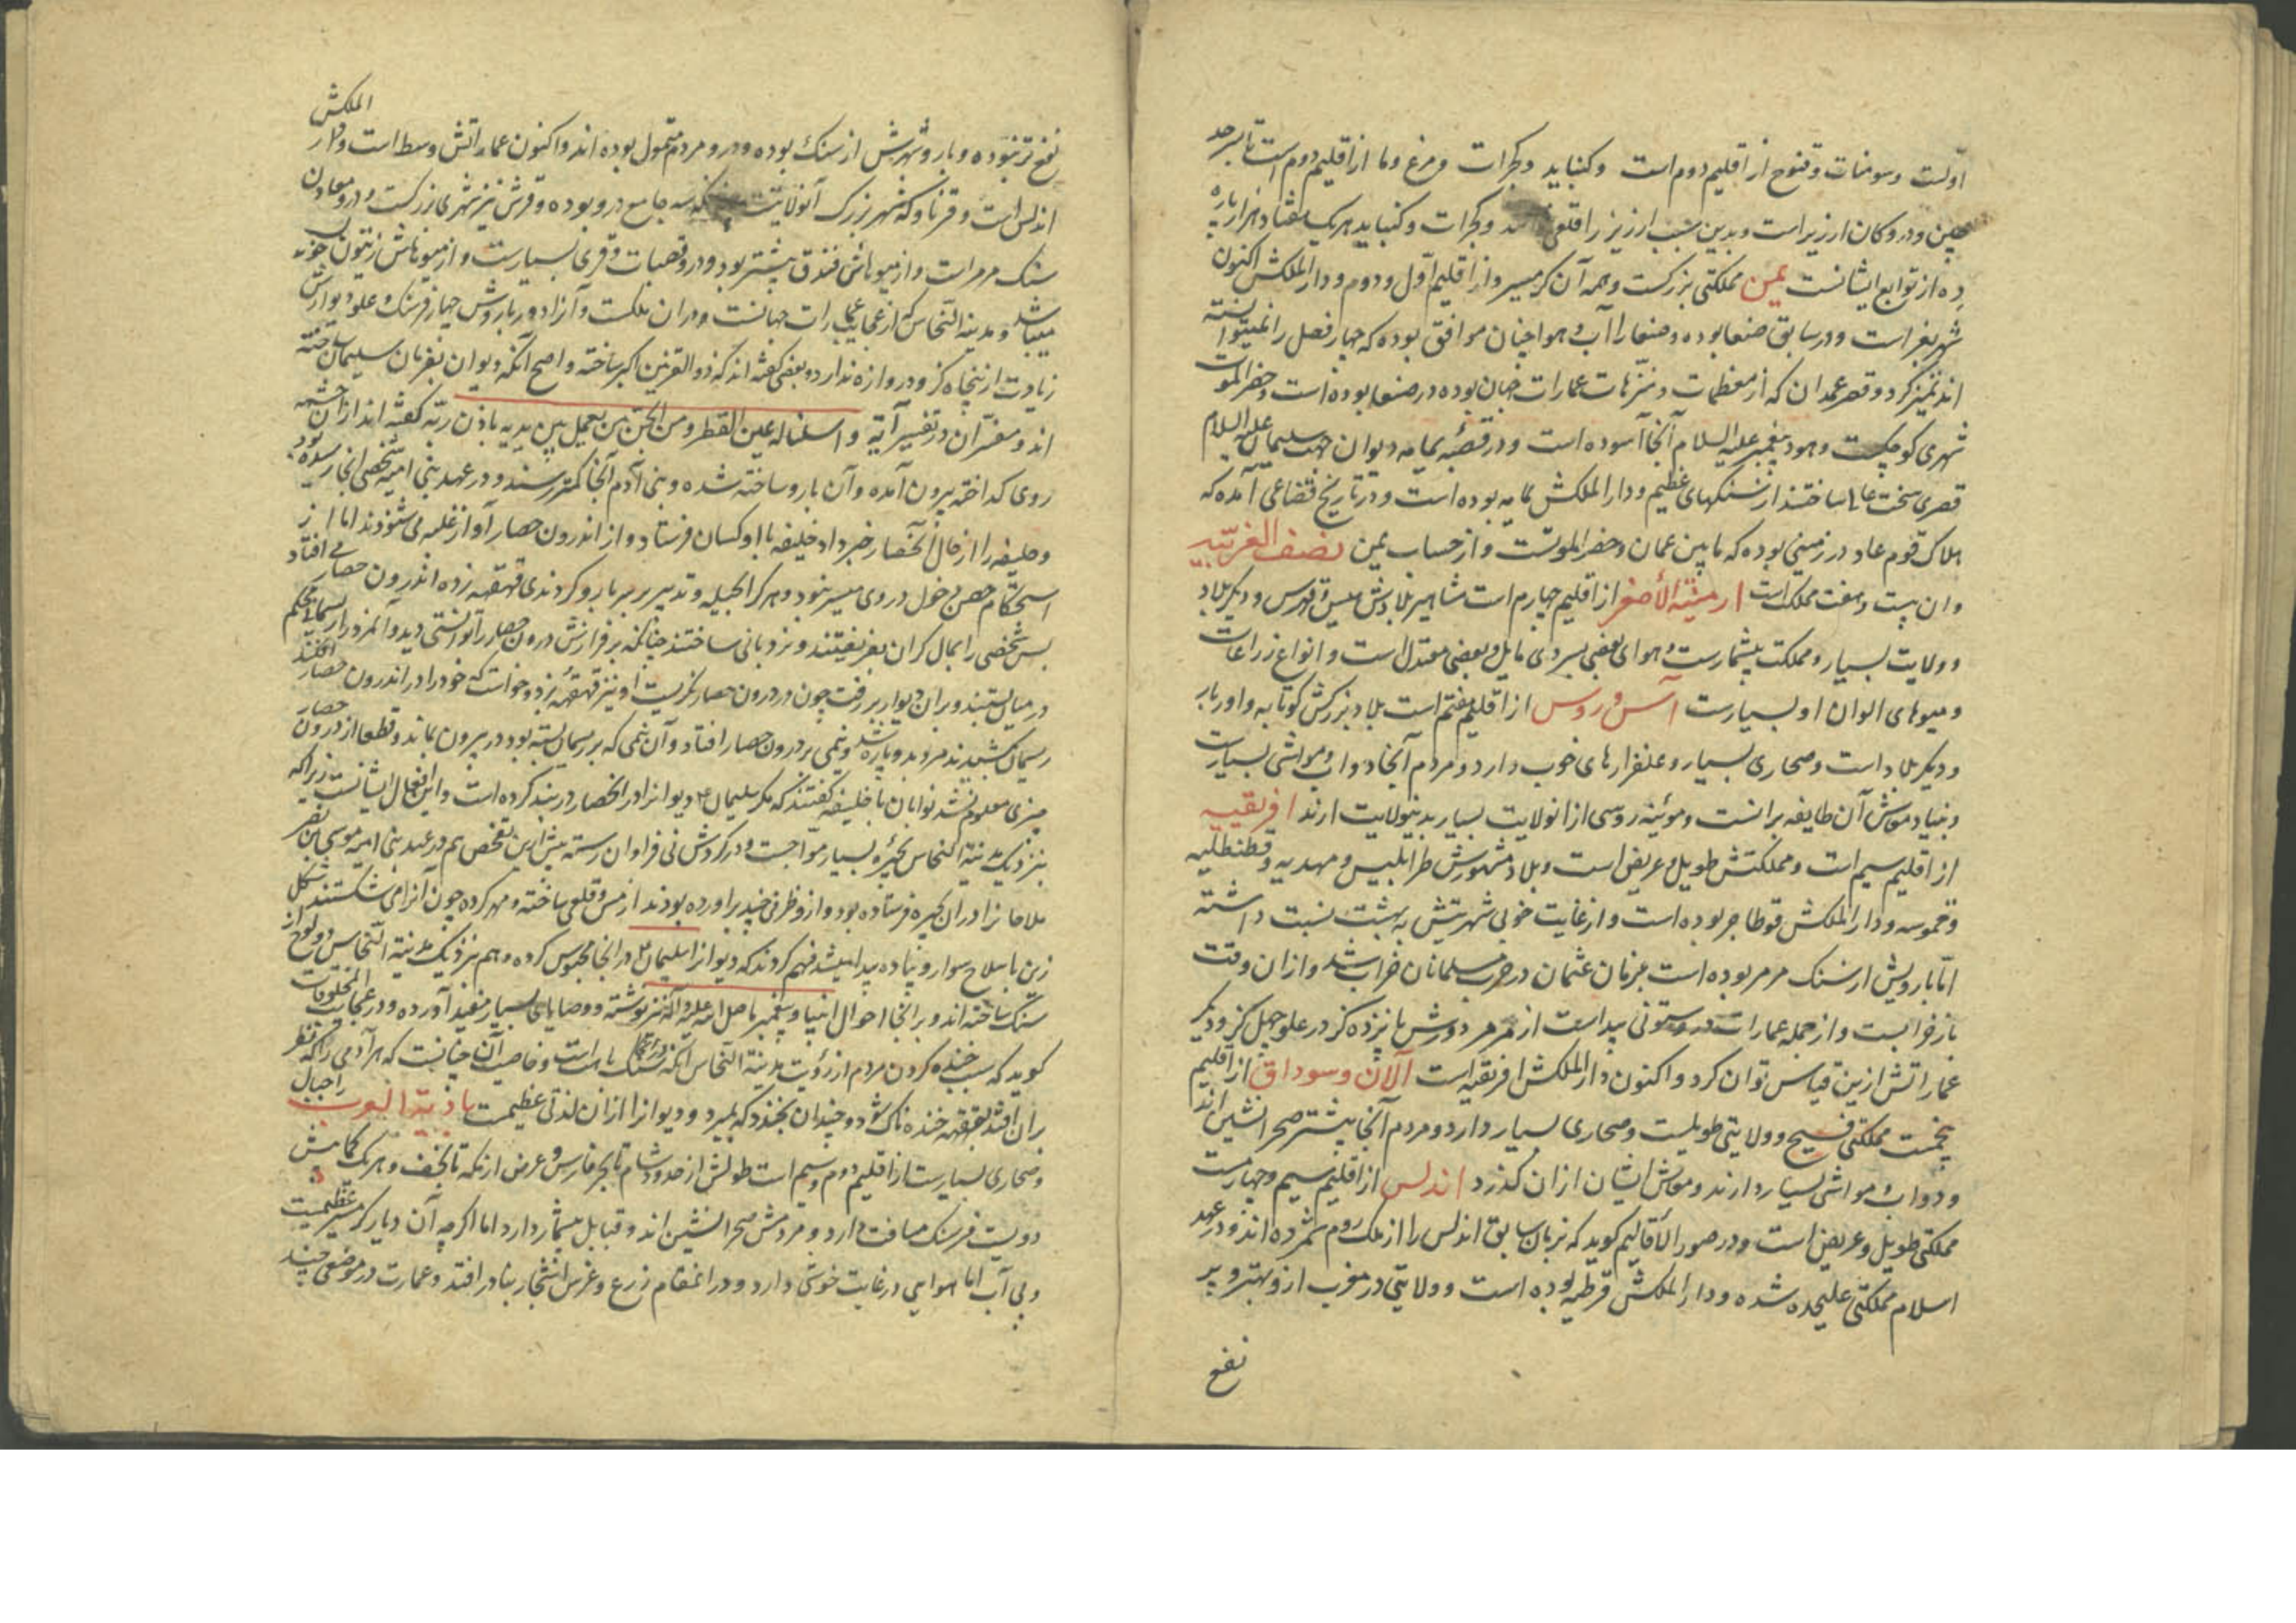 اولست و سومنات و قنوج از اقلیم دوم است و کنباید و کجرات و مرغ و ما از اقلیم دوم است تا سرحد
چین و درو کان ارزیر است و بدین سبب ارزیز را قلعی و کجرات و کنباید هریک هفتاد هزار پاره
ده از توابع ایشانست یمن مملکتی بزرکست و همه آن کرمسیر و از اقلیم اول و دوم و دار الملکش اکنون
شهر تعز است و در سابق صنعا بوده و صنعا را آب و هوا چنان موافق بوده که چهار فصل را نمیتوانسته
اند تمیز کرد و قصر عمدان که از معظمات و منزهات عمارات جهان بوده در صنعا بوده است و حضرالموت
شهری کوچکست و هود پیغمبر علیه السلام آنجا آسوده است و در قصبه یمامه دیوان جهت سلیمان علیه السلام
قصری سخت عالی ساختند از سنکهای عظیم و دار الملکش یمامه بوده است و در تاریخ قضاعی آمده که
هلاک قوم عاد در زمینی بوده که مابین عمان و حضرالموتست و از حساب یمن نصف الغربیه
و ان بیست و هفت مملکت است ارمنیة الأصغر از اقلیم چهارم است مشاهیر بلادش سیس و قبرس و دیکر بلاد
و ولایت بسیار و مملکت بیشمارست و هوای بعضی بسردی مایل و بعضی معتدل است و انواع زراعات
و میوهای الوان او بسیارست آس و روس از اقلیم هفتم است بلاد بزرکش کوتابه و اوربار
و دیکر بلاد است و صحاری بسیار و علفزارهای خوب دارد و مردم آنجا دواب و مواشی بسیارست
و بنیاد معاش آن طایفه برانست و موئینه روسی از انولایت بسیار بدینولایت ارند افریقیه
از اقلیم سیم است و مملکتش طویل و عریض است و بلاد مشهورش طرابلیس و مهدیه و قسطنطلیه
و حموسه و دار الملکش قوطاجر بوده است و از غایت خوبی شهرتش به بهشت نسبت داشته
اما بارویش از سنک مرمر بوده است بزمان عثمان در حرب مسلمانان خراب شد و از ان وقت
باز خرابست و از جمله عمارات درو ستونی پیداست از مرمر دورش پانزده کز در علو چهل کز و دیکر
عماراتش ازین قیاس توان کرد و اکنون دار الملکش افریقیه است آلان و سوداق از اقلیم
پنجمست مملکتی فسیح و ولایتی طویلست و صحاری بسیار دارد و مردم آنجا بیشتر صحرانشین اند
و دواب و مواشی بسیار دارند و معاش ایشان ازان کذرد اندلس از اقلیم سیم و چهارمست
مملکتی طویل و عریض است و در صور الأقالیم کوید که بزمان سابق اندلس را از ملک روم شمرده اند و در عهد
اسلام مملکتی علیحده شده و دار الملکش قرطبه بوده است و ولایتی در مغرب ازو بهتر و پر
نفع
الملکش
نفع تر نبوده و بارو شهرش از سنک بوده و درو مردم متمول بوده اند و اکنون عماراتش وسط است و دار
اندلس است و قرناو که شهر بزرک آنولایتست جامع درو بوده و قرش نیز شهری بزرکست و درو معادن
سنک مرمر است و از میوهاش فندق بیشتر بود و درو قصبات و قری بسیارست و از میوهاش زیتون خوب
میباشد و مدینة النحاس که از عجایب عمارات جهانست و دران ملکست و آنرا دور بارویش چهار فرسنک و علو دیوارش
زیادت از پنجاه کز و دروازه ندارد و بعضی کفته اند که ذوالقرنین اکبر ساخته و اصح آنکه دیوان بفرمان سلیمان ساخته
اند و مفسران در تفسیر آیه و اسلنا له عین القطر و من الجن من یعمل بین یدیه باذن ربه کفته اند ازان چشمه
روی کداخته بیرون آمده و آن بارو ساخته شده و بنی آدم آنجا کمتر رسند و در عهد بنی امیه شخصی انجا رسیده بود
و خلیفه را از حال آنحصار خبر داد خلیفه با او کسان فرستاد و از اندرون حصار آواز غلبه می شنودند اما از
استحکام حصن دخول در وی میسر نبود و هر کرا بحیله و تدبیر بر سر بارو کردندی قهقهه زده اندرون حصار می افتاد
پس شخصی را بمال کران بفریفتند و نردبانی ساختند چنانکه بر فرازش درون حصار را توانستی دید و آنمرد را ریسمانی محکم
در میان بستند و بران دیوار بر رفت چون در درون حصار نکریست او نیز قهقهه بزد و خواست که خود را در اندرون حصار افکند
ریسمان کشیدند مرد بدو پاره شد و نیمی بر درون حصار افتاد و آن نیمی که بر ریسمان بسته بود در بیرون بماند و قطعا از درون حصار
چیزی معلوم نشد نوابان با خلیفه کفتند که مکر سلیمان ع دیوانرا در انحصار در بند کرده است و این افعال ایشانست زیرا که
بنزدیک مدینة النحاس بحیره بسیار مواجست و در کردش نی فراوان رسته پیش ازین تفحص هم در عهد بنی امیه موسی بن نصر
ملاحانرا دران بحیره فرستاده بود و ازو ظرفی چند براورده بودند از مس و قلعی ساخته و مهر کرده چون آنرا می شکستند شکل
زین با سلاح سوار و پیاده پیدا میشد فهم کردند که دیوانرا سلیمان ع در انجا محبوس کرده و هم نزدیک مدینة النحاس دو لوح از
سنک ساخته اند و برانجا احوال انبیا و پیغمبر ما صلی الله علیه و آله نیز نوشته و وصایای بسیار مفید آورده و در عجایب المخلوقات
کوید که سبب خنده کردن مردم از رؤیت مدینة النحاس آنکه سنک باهت است و خاصیت آن چنانست که هر آدمی را که نظر
بران افتد بقهقهه خنده ناک شود و چندان بخندد که بمیرد و دیوانرا ازان لذتی عظیمست بادیة العرب را جبال
و صحاری بسیارست از اقلیم دوم و سیم است طولش از حدود شام تا بحر فارس و عرض از مکه تا نجف و هر یک کمابیش
دویست فرسنک مسافت دارد و مردمش صحرانشین اند و قبایل بیشمار دارد اما اکرچه آن دیار کرمسیر عظیمست
و بی آب اما هوایی در غایت خوشی دارد و در انمقام زرع و غرس اشجار بنادر افتد و عمارت در موضعی چند